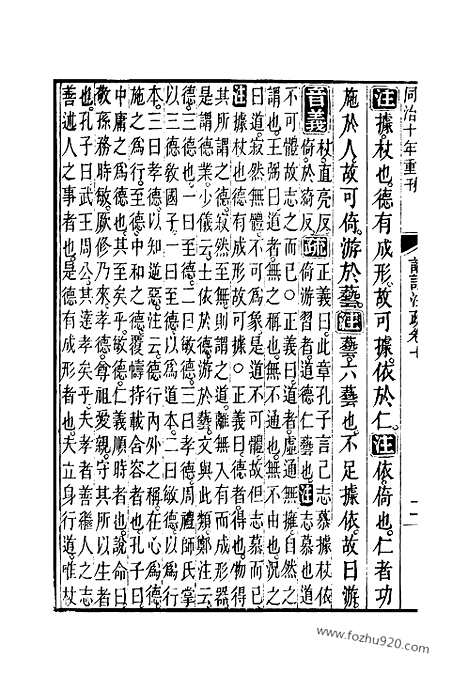 同治十年重刊 論語注疏卷七 二
注據杖也。德有成形。故可據。依於仁。注依倚也。仁者功
施於人。故可倚。游於藝。注藝六藝也。不足據依。故曰游。
音義杖。直亮反疏正義曰。此章孔子言己志慕據杖依
倚。於綺反倚游習者。道德仁藝也。注志慕也。道
不可體。故志之而已○正義曰。道者。虛通無擁。自然之
謂也。王弼曰。道者。無之稱也。無不通也。無不由也。況之
曰道。寂然無體。不可為象。是道不可體。故但志慕而已。
注據杖也。德有成形。故可據○正義曰。德者得也。物得
其所謂之德。寂然至無。則謂之道。離無入有而成形器。
是謂德業。少儀云。士依於德。游於藝。文與此類。鄭注云。
德三德也。一曰至德。二曰敏德。三曰孝德。周禮師氏掌
以三德教國子。一曰至德。以為道本。二曰敏德。以為行
本。三曰孝德。以知逆惡。注云。德行。內外之稱。在心為德。
施之為行。至德。中和之德。覆幬持載含容者也。孔子曰。
中庸之為德也。其至矣乎。敏德。仁義順時者也。說命曰。
敬孫務時敏。厥修乃來。孝德。尊祖愛親。守其所以生者
也。孔子曰。武王周公。其達孝矣乎。夫孝者。善繼人之志。
善述人之事者也。是德有成形者也。夫立身行道。唯杖
www.fozhu920.com